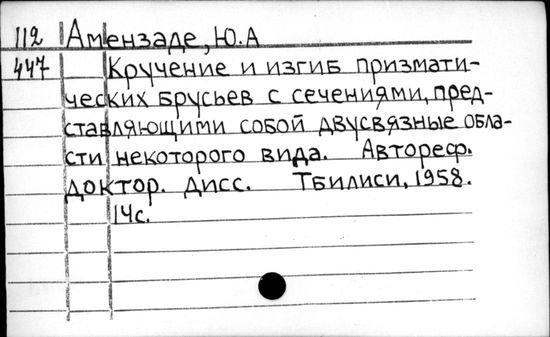 112 Амензаде, Ю.А
447 Кручение и изгиб призмати-
ческих брусьев с сечениями, пред-
ставляющими собой двусвязные обла-
сти некоторого вида. Автореф.
доктор. дисс. Тбилиси, 1958.
14с.